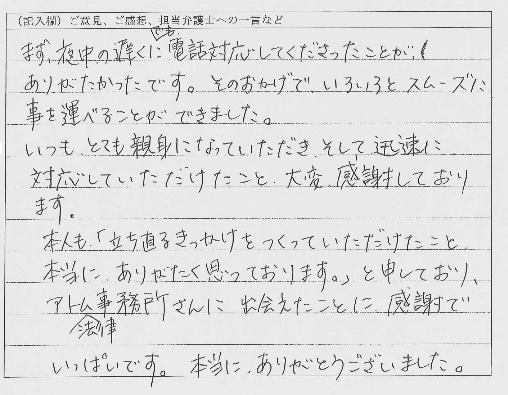 (記入欄) ご意見、ご感想、担当弁護士への一言など
まず、夜中の遅くにでも電話対応してくださったことが、
ありがたかったです。そのおかげで いろいろと スムーズに
事を運べることができました。
いつも、とても親身になっていただき、そして 迅速に
対応していただけたこと、大変 感謝しており
ます。
本人も、「立ち直るきっかけをつくっていただけたこと
本当に、ありがたく思っております。」と申しており、
アトム法律事務所さんに 出会えたことに 感謝で
いっぱいです。 本当に、ありがとうございました。